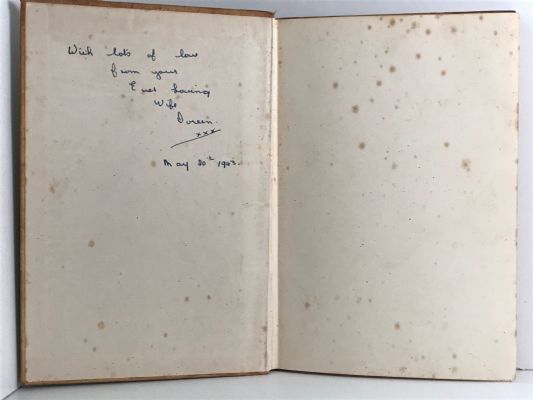 With lots of love
from your
Ever Loving
Wife
Doreen.
xxx
May 30th